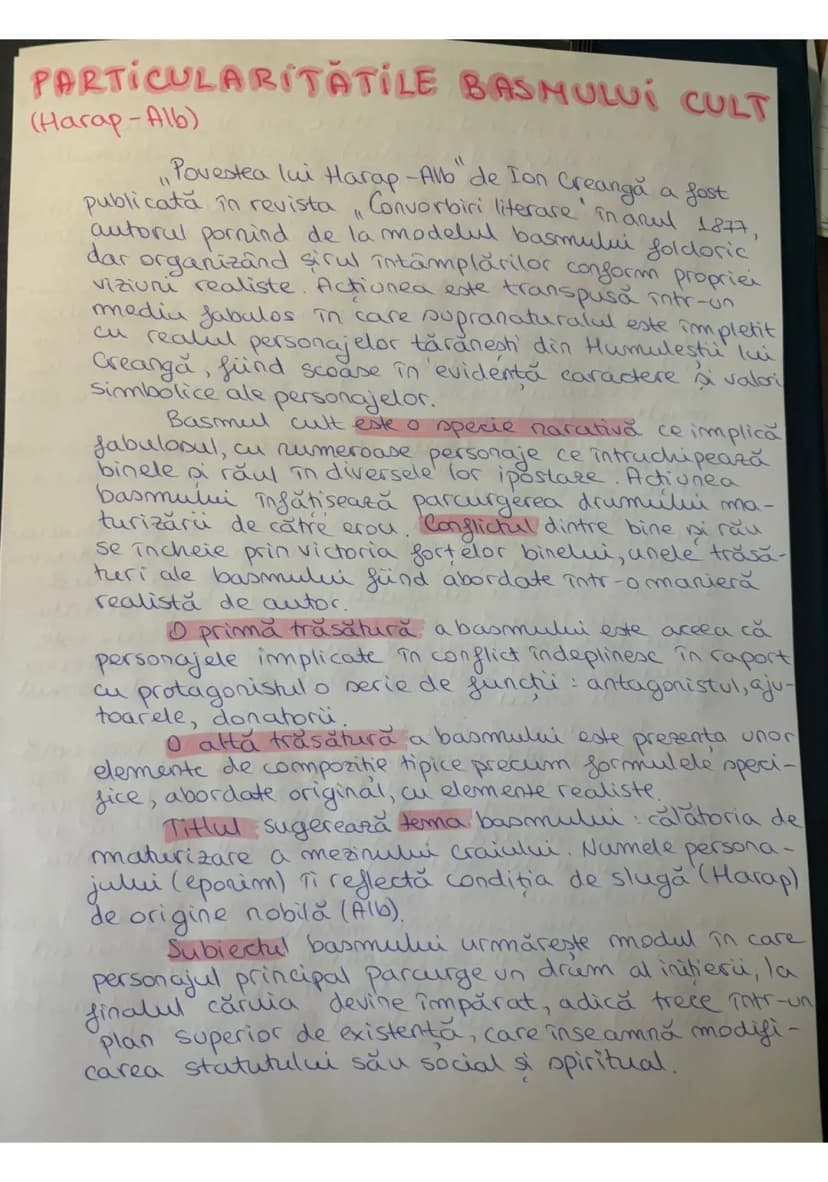 PARTICULARITĂȚILE BASMULUI CULT
(Harap-Alb)
„Povestea lui Harap-Alb" de Ion Creangă a fost
publicată în revista „Convorbiri literare" în anul 1877,
autorul pornind de la modelul basmului folcloric
dar organizând șirul întâmplărilor conform propriei
viziuni realiste. Acțiunea este transpusă într-un
mediu fabulos în care supranaturalul este împletit
cu realul personajelor țărănești din Humuleștii lui
Creangă, fiind scoase în evidență caractere și valori
simbolice ale personajelor.
Basmul cult este o specie narativă ce implică
fabulosul, cu numeroase personaje ce întruchipează
binele și răul în diversele lor ipostaze. Acțiunea
basmului înfățișează parcurgerea drumului ma-
turizării de către erou. Conflictul dintre bine și rău
se încheie prin victoria forțelor binelui, unele trăsă-
turi ale basmului fiind abordate într-o manieră
realistă de autor.
O primă trăsătură a basmului este aceea că
personajele implicate în conflict îndeplinesc în raport
cu protagonistul o serie de funcții: antagonistul, aju-
toarele, donatorii.
O altă trăsătură a basmului este prezența unor
elemente de compoziție tipice precum formulele speci-
fice, abordate original, cu elemente realiste.
Titlul sugerează tema basmului: călătoria de
maturizare a mezinului craiului. Numele persona-
jului (eponim) îi reflectă condiția de slugă (Harap)
de origine nobilă (Alb).
Subiectul basmului urmărește modul în care
personajul principal parcurge un drum al inițierii, la
finalul căruia devine împărat, adică trece într-un
plan superior de existență, care înseamnă modifi-
carea statutului său social și spiritual.